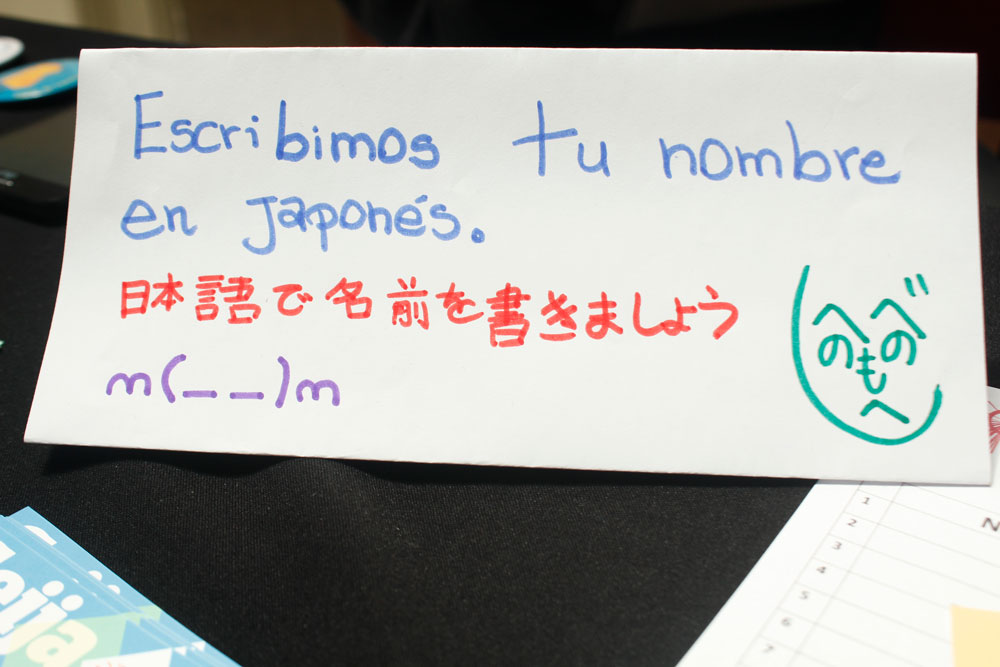 Escribimos tu nombre
en japonés.
日本語で名前を書きましょう
m(_ _)m
へべ
のの
も
へ
eija
1
2
3
4
5
6
7
N